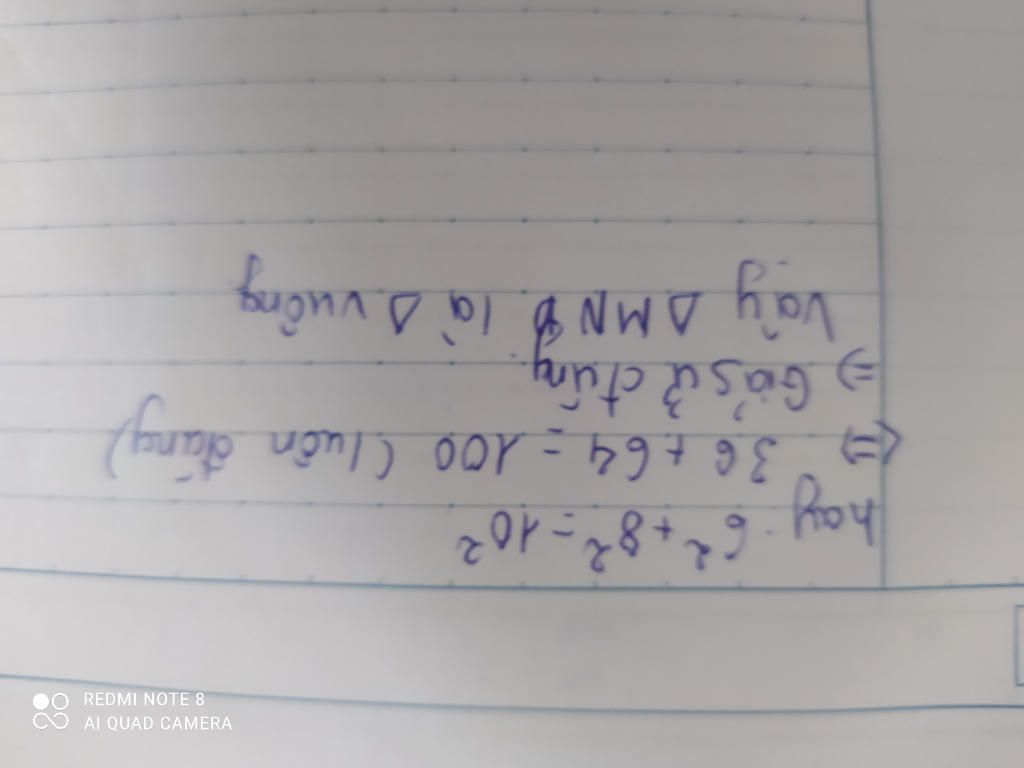 hay 6² + 8² = 10²
<=> 36 + 64 = 100 (luôn đúng)
=> Giả sử đúng
Vậy Δ MNP là Δ vuông
REDMI NOTE 8
AI QUAD CAMERA